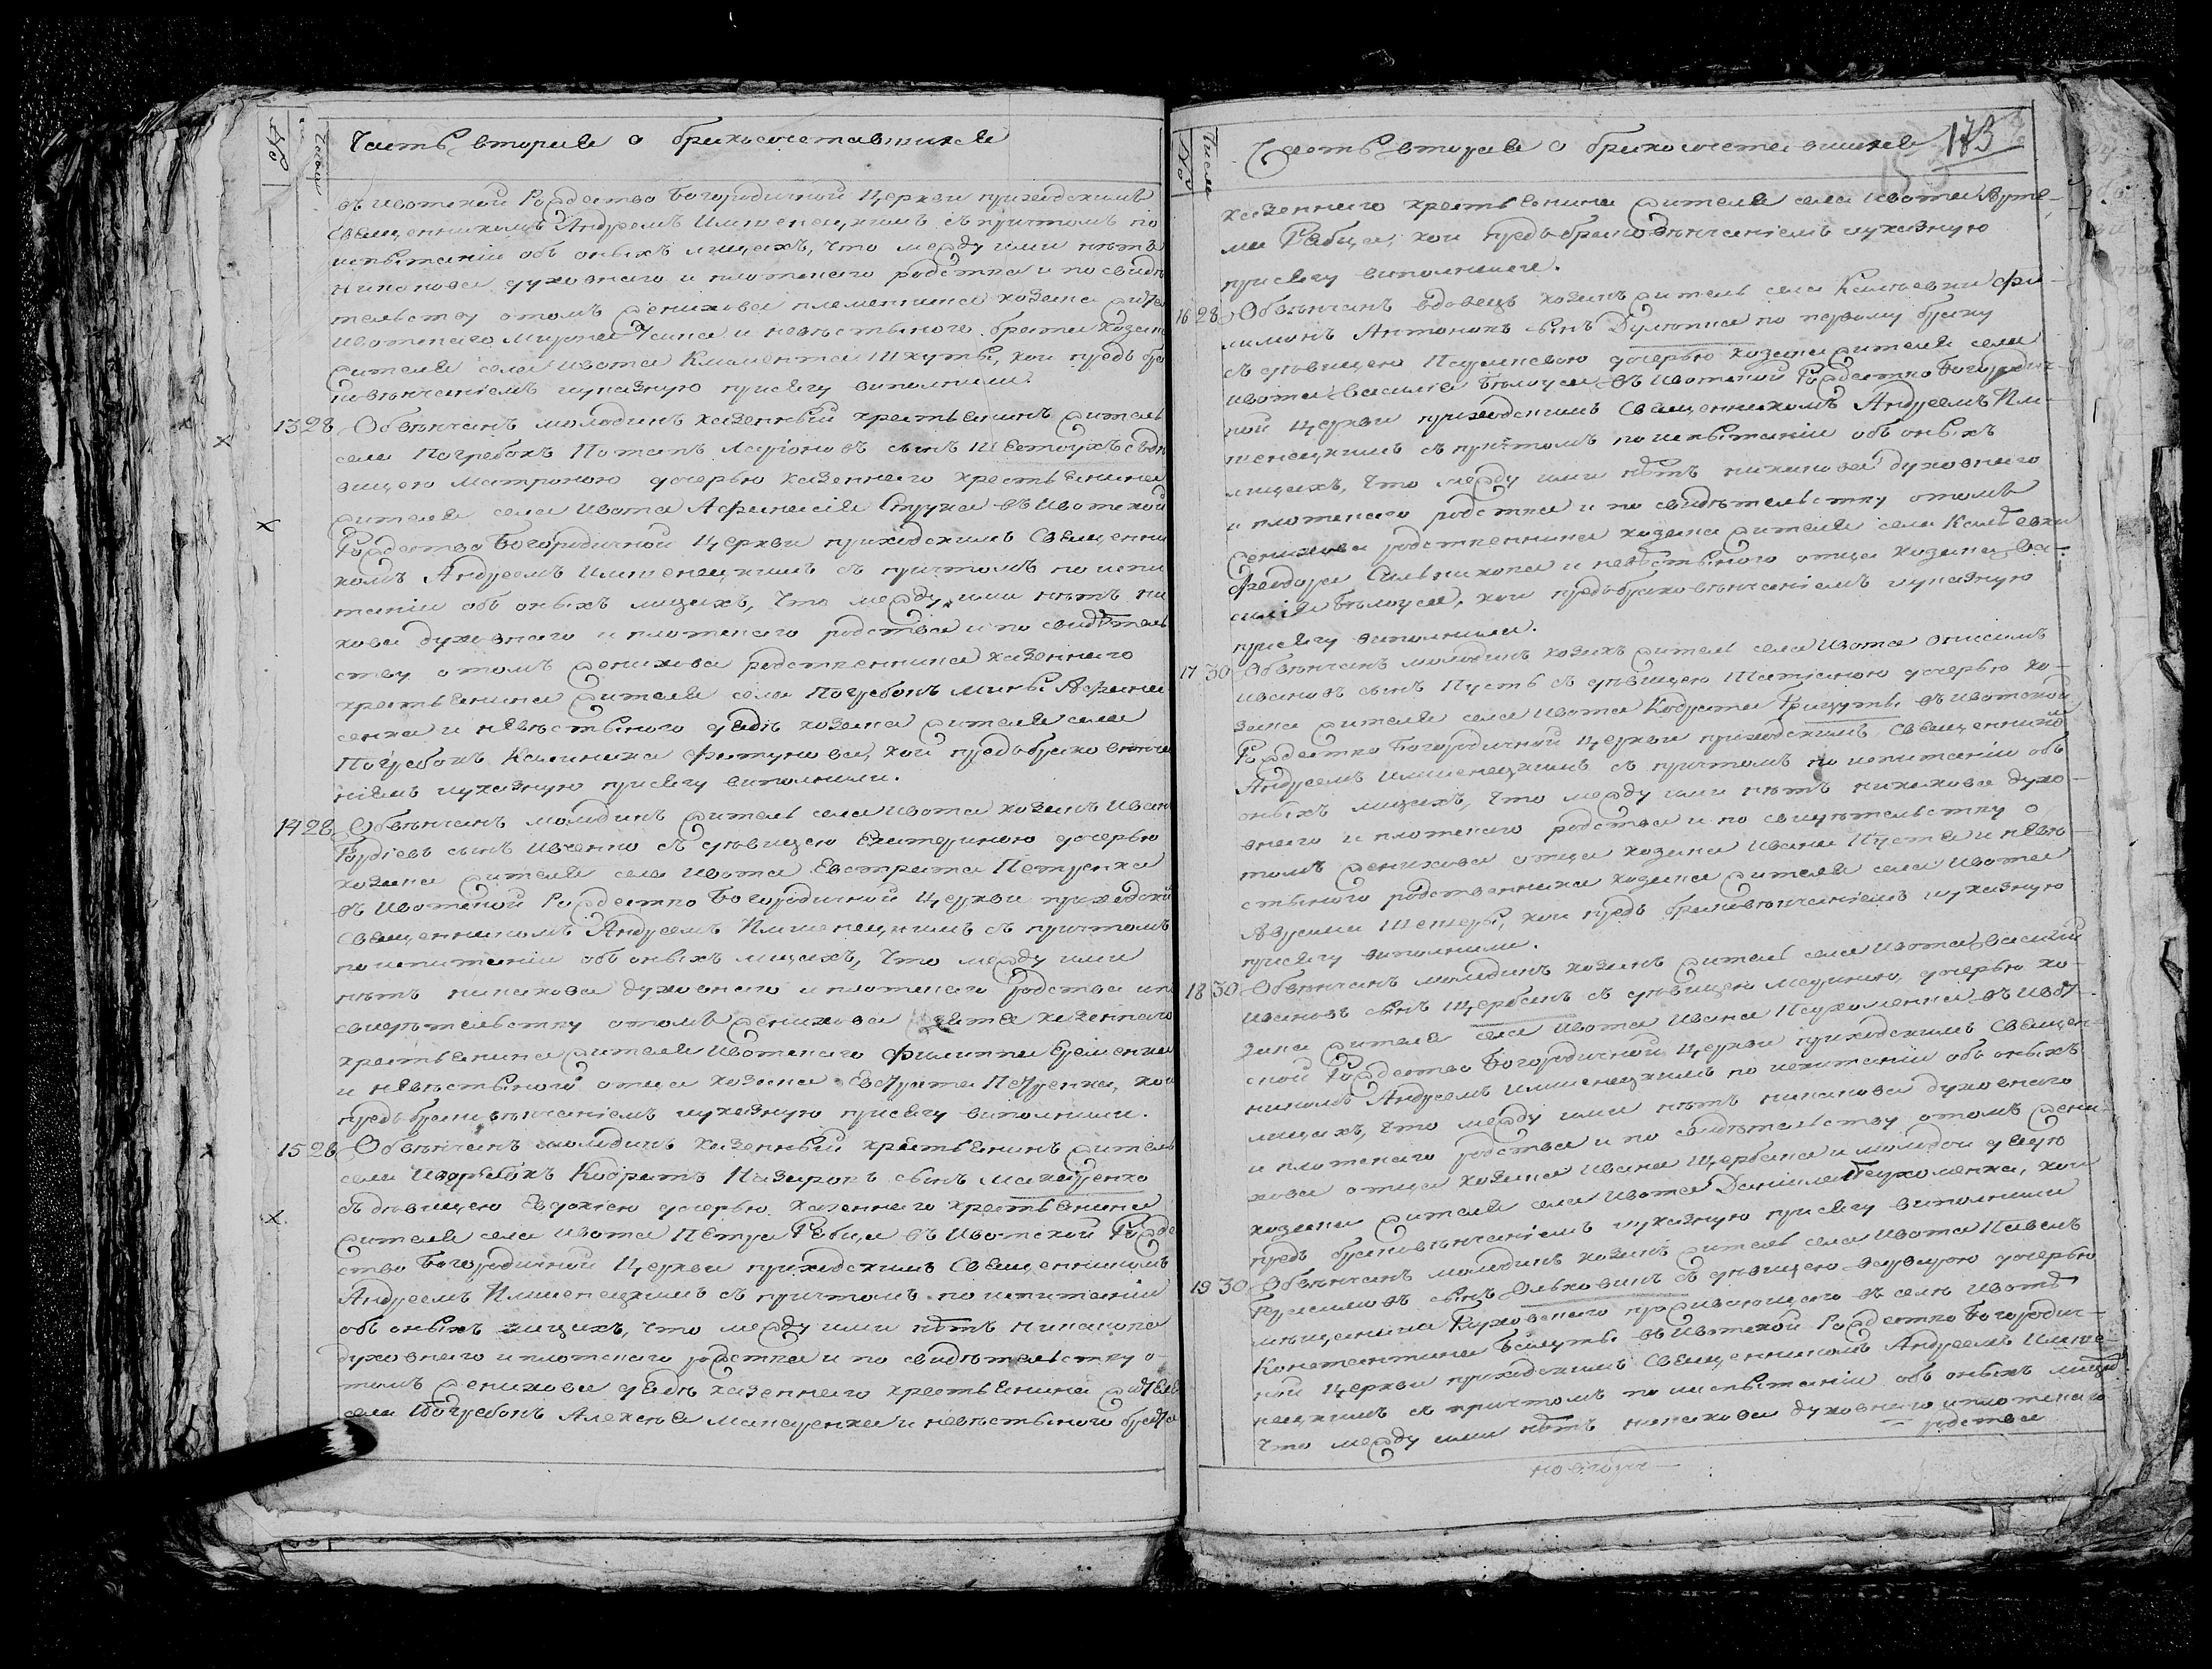 №
Число
Часть вторая о бракосочетавшихся
въ Ивотской Рождество Богородичной Церкви приходскимъ
Священникомъ Андреемъ Имшенецкимъ съ причтомъ по
испытаніи объ оныхъ лицахъ, что между ими нѣтъ
никакова духовнаго и плотскаго родства и по свидѣ
тельству о томъ женихова племенника козака жите
Ивотскаго Мирона и невѣстьного брата козака
жителя села Ивота Климента Шкуты, кои предъ бра
ковѣнчаніемъ указную присягу виполнили.
13 28 Обвѣнчанъ молодикъ казенный крестьянинъ житель
села Погребокъ Потапъ Ларіоновъ сынъ Шестоухъ съ дѣ
вицею Матроною дочерью казеннаго крестьянина
жителя села Ивота Афанасія Струка въ Ивотской
Рождество Богородичной Церкви приходскимъ Священни
комъ Андреемъ Имшенецкимъ съ причтомъ по испи
таніи объ оныхъ лицахъ, что между ими нѣтъ ни
кова духовнаго и плотскаго родства и по свидѣтель
ству о томъ женихова родственника казеннаго
крестьянина жителя села Погребокъ Мины Афана
сенка и невѣстьного дядѣ козака жителя села
Погребокъ Калиника Фетунова, кои предъ брако вѣнча
ніемъ указную присягу виполнили.
14 28 Обвѣнчанъ молодикъ житель села Ивота козакъ Иванъ
Гордіевъ сынъ Ивченко съ дѣвицею Екатериною дочерью
козака жителя села Ивота Евстрата Петренка
въ Ивотской Рождество Богородичной Церкви приходски
Священникомъ Андреемъ Имшенецкимъ съ причтомъ
по испитаніи объ оныхъ лицахъ, что между ими
нѣтъ никакова духовнаго и плотскаго родства и по
свидѣтельству о томъ женихова зятя казеннаго
крестьянина жителя Ивотскаго Филиппа Ереименка
и невѣстьного отца козака Евстрата Петренка, кои
предъ браковѣнчаніемъ указную присягу виполнили.
15 28 Обвѣнчанъ молодикъ казенный крестьянинъ житель
села Погребокъ Кодратъ Назаровъ сынъ Макаренко
съ дѣвицею Евдокіею дочерью казеннаго крестьянина
жителя села Ивота Петра Рабца въ Ивотской Рожде
ство Богородичной Церкви приходскимъ Священникомъ
Андреемъ Имшенецкимъ съ причтомъ по испитаніи
объ оныхъ лицахъ, что между ими нѣтъ никакова
духовнаго и плотскаго родства и по свидѣтельству о-
томъ женихова дядѣ казеннаго крестьянина жителя
села Погребокъ Алексѣя Макаренка и невѣстьного брата
№
Число
Часть вторая о бракосочетавшихся 173
казеннаго крестьянина жителя села Ивота Арте-
ма Рабца, кои предъ браковѣнчаніемъ указную
присягу виполнили.
16 28 Обвѣнчанъ вдовецъ козакъ житель села Кальевки Фи-
лимонъ Антоновъ сынъ по первому браку
съ дѣвицею дочерью козака жителя села
Ивота Василія Бѣлоуса въ Ивотской Рождество Богородич-
ной Церкви приходскимъ Священникомъ Андреемъ Им-
шенецкимъ съ причтомъ по испытаніи объ оныхъ
лицахъ, что между ими нѣтъ никакова духовнаго
и плотскаго родства и по свидѣтельству о томъ
женихова родственника козака жителя села Кальевки
Феодора Сальникова и невѣстьного отца козака Ва-
силія Бѣлоуса, кои предъ браковѣнчаніемъ указную
присягу виполнили.
17 30 Обвѣнчанъ молодикъ козакъ житель села Ивота Онисимъ
Ивановъ сынъ Пусть съ дѣвицею Татіаною дочерью ко-
зака жителя села Ивота Кодрата Грицуты въ Ивотской
Рождество Богородичной Церкви приходскимъ Священнико
Андреемъ Имшенецкимъ съ причтомъ по испитаніи объ
оныхъ лицахъ, что между ими нѣтъ никакова духо-
внаго и плотскаго родства и по свидѣтельству о
томъ женихова отца козака Ивана Пуста и невѣ-
стьного родственника козака жителя села Ивота
Аврама, кои предъ браковѣнчаніемъ указную
присягу виполнили.
18 30 Обвѣнчанъ молодикъ козакъ житель села Ивота Василій
Ивановъ сынъ Щербакъ съ дѣвицею Мариною, дочерью ко-
зака жителя села Ивота Ивана Пархоменка въ Ивот-
ской Рождество Богородичной Церкви приходскимъ Священ-
никомъ Андреемъ Имшенецкимъ по испитаніи объ оныхъ
лицахъ, что между ими нѣтъ никакова духовнаго
и плотскаго родства и по свидѣтельству о томъ жени-
хова отца козака Ивана Щербака и молодой дядю
козака жителя села Ивота Данила Пархоменка, кои
предъ браковѣнчаніемъ указную присягу виполнили
19 30 Обвѣнчанъ молодикъ козакъ житель села Ивота Павелъ
Герасимовъ сынъ Ольховикъ съ дѣвицею Варварою дочерью
мѣщанина Глуховскаго проживающаго въ селѣ Ивотѣ
Константина въ Ивотской Рождество Богородич-
ной Церкви приходскимъ Священникомъ Андреемъ Имше-
нецкимъ съ причтомъ по испытаніи объ оныхъ лицах
что между ими нѣтъ никакова духовнаго и плотскаго
родства